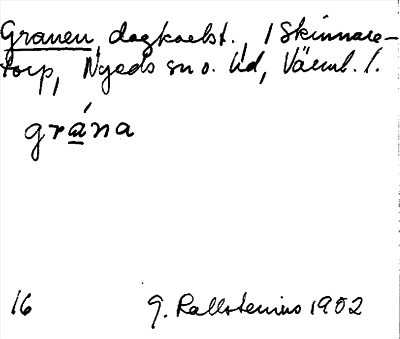 Granen, dagkarlst., / Skinnare-
torp, Nyeds sn o. hd, Värml. l.
grána
16 G. Kallstenius 1902